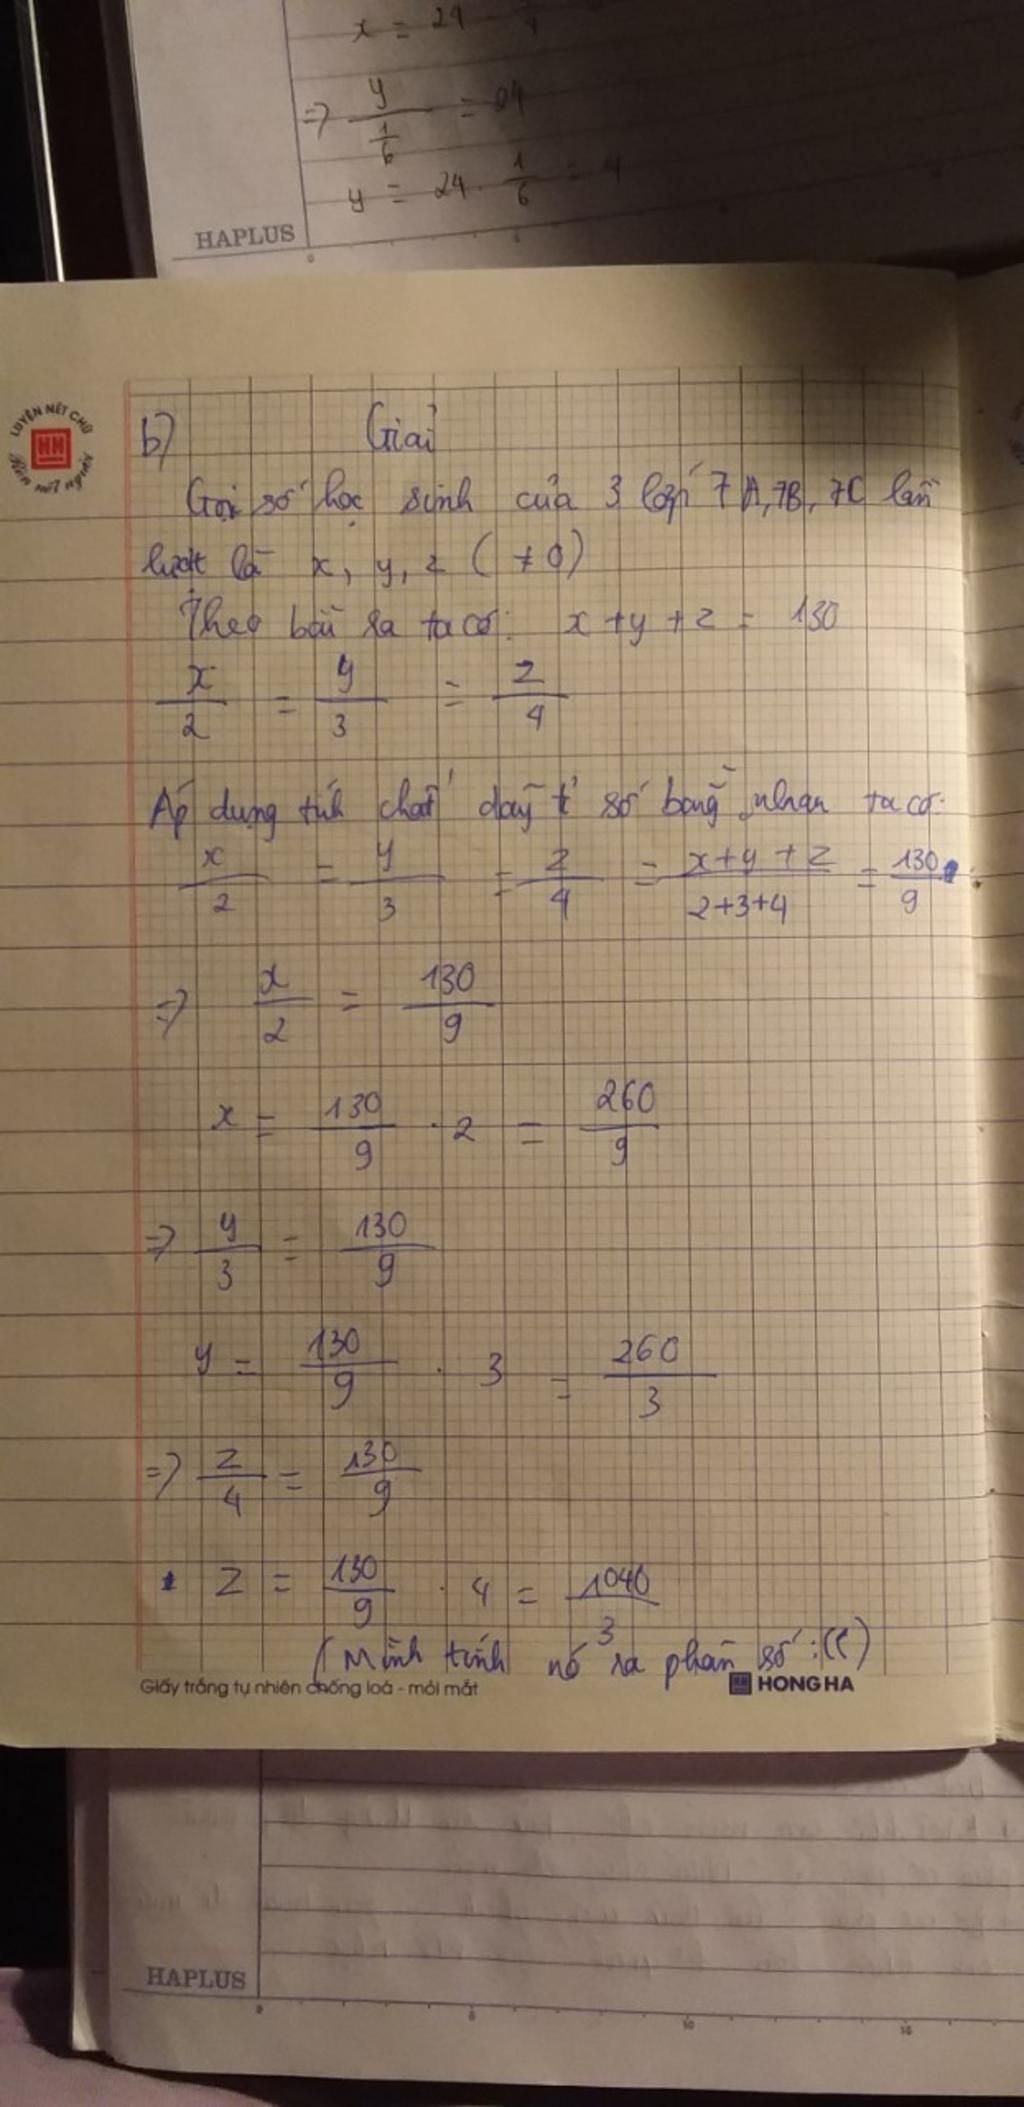 x = 24
=> y / 1/6 = 24
y = 24 . 1/6 = 4
HAPLUS
LUYỆN NÉT CHỮ
Rèn nết người
b) Giải
Gọi số học sinh của 3 lớp 7A, 7B, 7C lần
lượt là x, y, z ( ≠ 0)
Theo bài ra ta có: x + y + z = 130
x/2 = y/3 = z/4
Áp dụng tính chất dãy tỉ số bằng nhau ta có:
x/2 = y/3 = z/4 = x+y+z / 2+3+4 = 130/9
=> x/2 = 130/9
x = 130/9 . 2 = 260/9
=> y/3 = 130/9
y = 130/9 . 3 = 260/3
=> z/4 = 130/9
z = 130/9 . 4 = 1040/3
(Mình tính nó ra phân số :(( )
Giấy trắng tự nhiên chống loá - mỏi mắt
HONG HA
HAPLUS
0 5 10 15